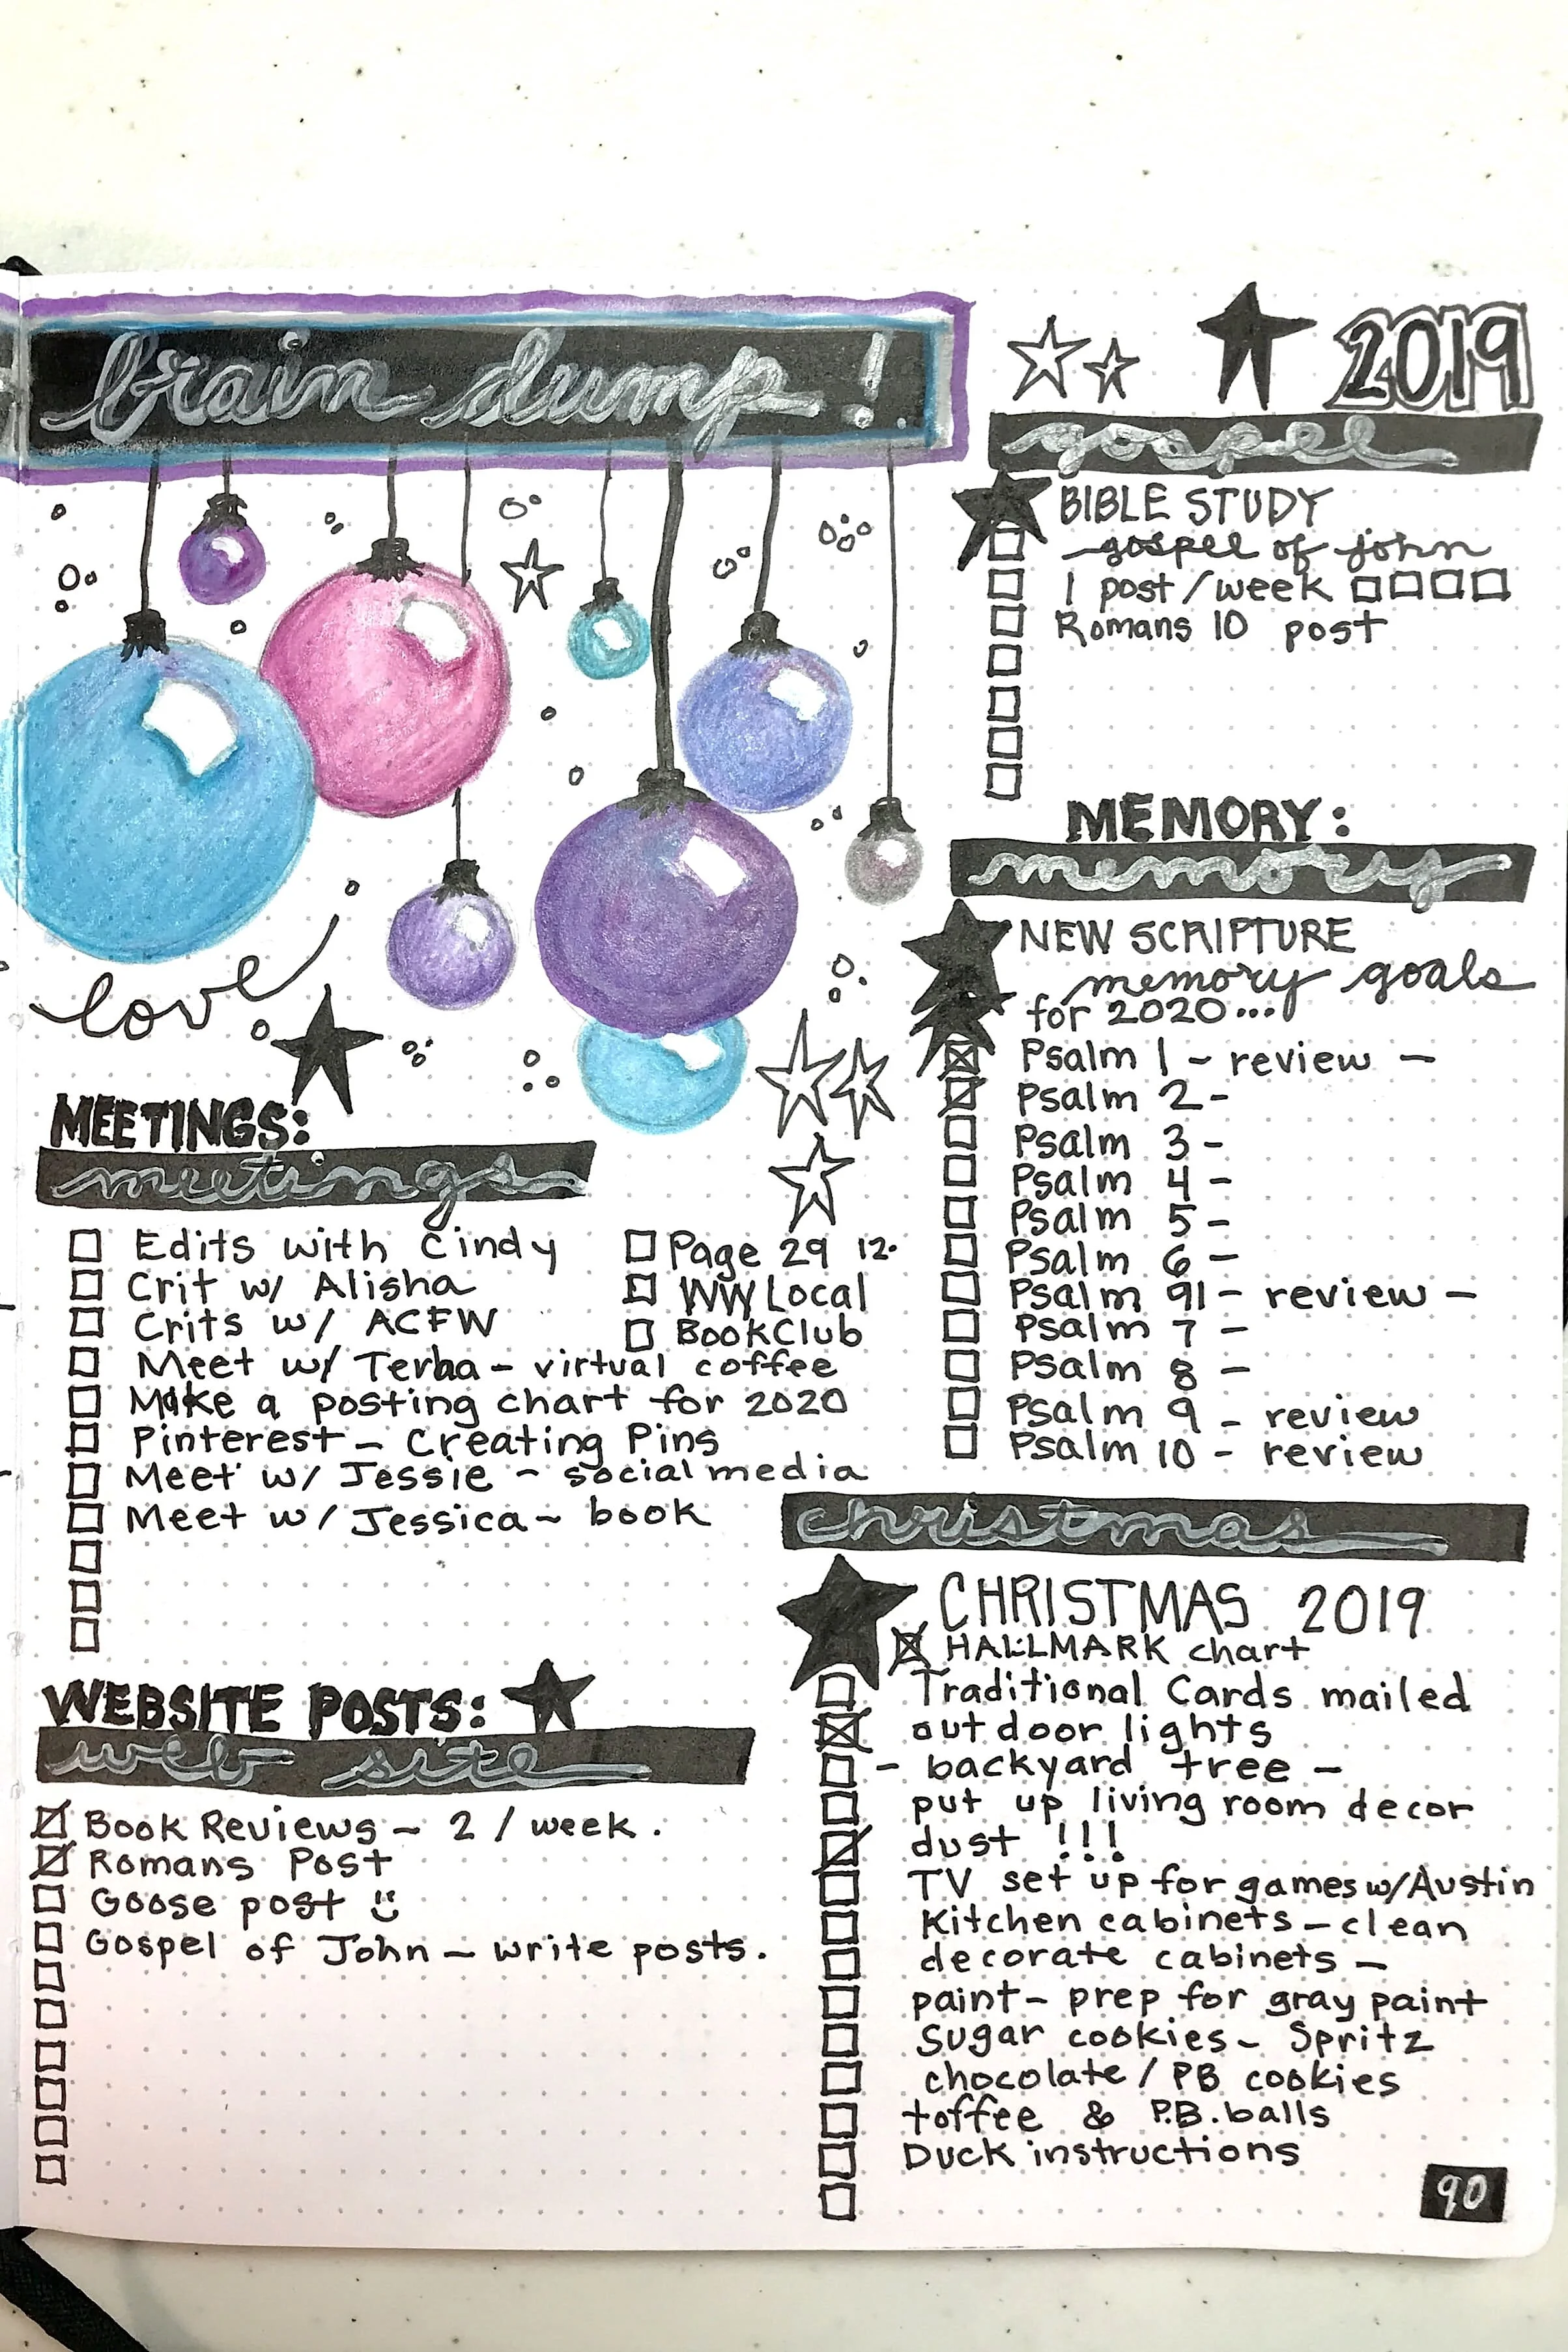 brain dump!
love
MEETINGS:
meetings
Edits with Cindy
Crit w/ Alisha
Crits w/ ACFW
Meet w/ - virtual coffee
Make a posting chart for 2020
Pinterest - Creating Pins
Meet w/ Jessie - social media
Meet w/ Jessica - book
Page 29 12.
WW Local
Book Club
WEBSITE POSTS:
web site
Book Reviews - 2 / week.
Romans Post
Goose post
Gospel of John - write posts.
2019
gospel
BIBLE STUDY
-gospel of john
1 post/week
Romans 10 post
MEMORY:
memory
NEW SCRIPTURE
memory goals
for 2020...
Psalm 1 - review -
Psalm 2-
Psalm 3-
Psalm 4-
Psalm 5-
Psalm 6-
Psalm 91- review -
Psalm 7 -
Psalm 8 -
Psalm 9 - review
Psalm 10 - review
christmas
CHRISTMAS 2019
HALLMARK chart
Traditional Cards mailed
outdoor lights
- backyard tree -
put up living room decor
dust !!!
TV set up for games w/Austin
Kitchen cabinets - clean
decorate cabinets -
paint - prep for gray paint
Sugar cookies - Spritz
chocolate / PB cookies
toffee & P.B. balls
Duck instructions
90